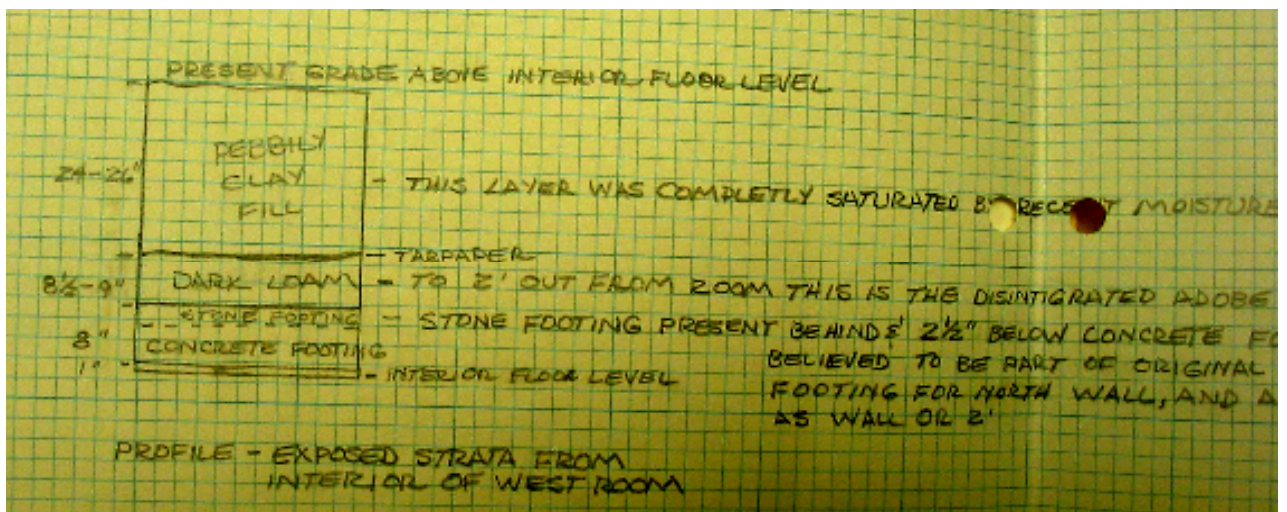 PRESENT GRADE ABOVE INTERIOR FLOOR LEVEL
PEBBILY
24-26" CLAY - THIS LAYER WAS COMPLETLY SATURATED BY RECENT MOISTURE
FILL
- TARPAPER
8½-9" DARK LOAM - TO 2' OUT FROM ROOM THIS IS THE DISINTIGRATED ADOBE
STONE FOOTING - STONE FOOTING PRESENT BEHIND & 2½" BELOW CONCRETE FO
8" CONCRETE FOOTING BELIEVED TO BE PART OF ORIGINAL
1" - INTERIOR FLOOR LEVEL FOOTING FOR NORTH WALL, AND A
AS WALL OR 2'
PROFILE - EXPOSED STRATA FROM
INTERIOR OF WEST ROOM